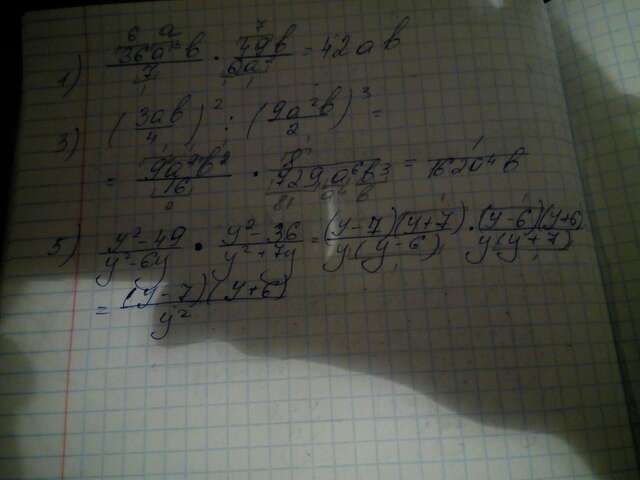 1) 36a²b/7 · 49b/6a = 42ab
3) (3ab/4)² : (9a²b/2)³ =
= 9a²b²/16 · 8/729a⁶b³ = 1/162a⁴b
5) y²-49/y²-6y · y²-36/y²+7y = (y-7)(y+7)/y(y-6) · (y-6)(y+6)/y(y+7)
= (y-7)(y+6)/y²